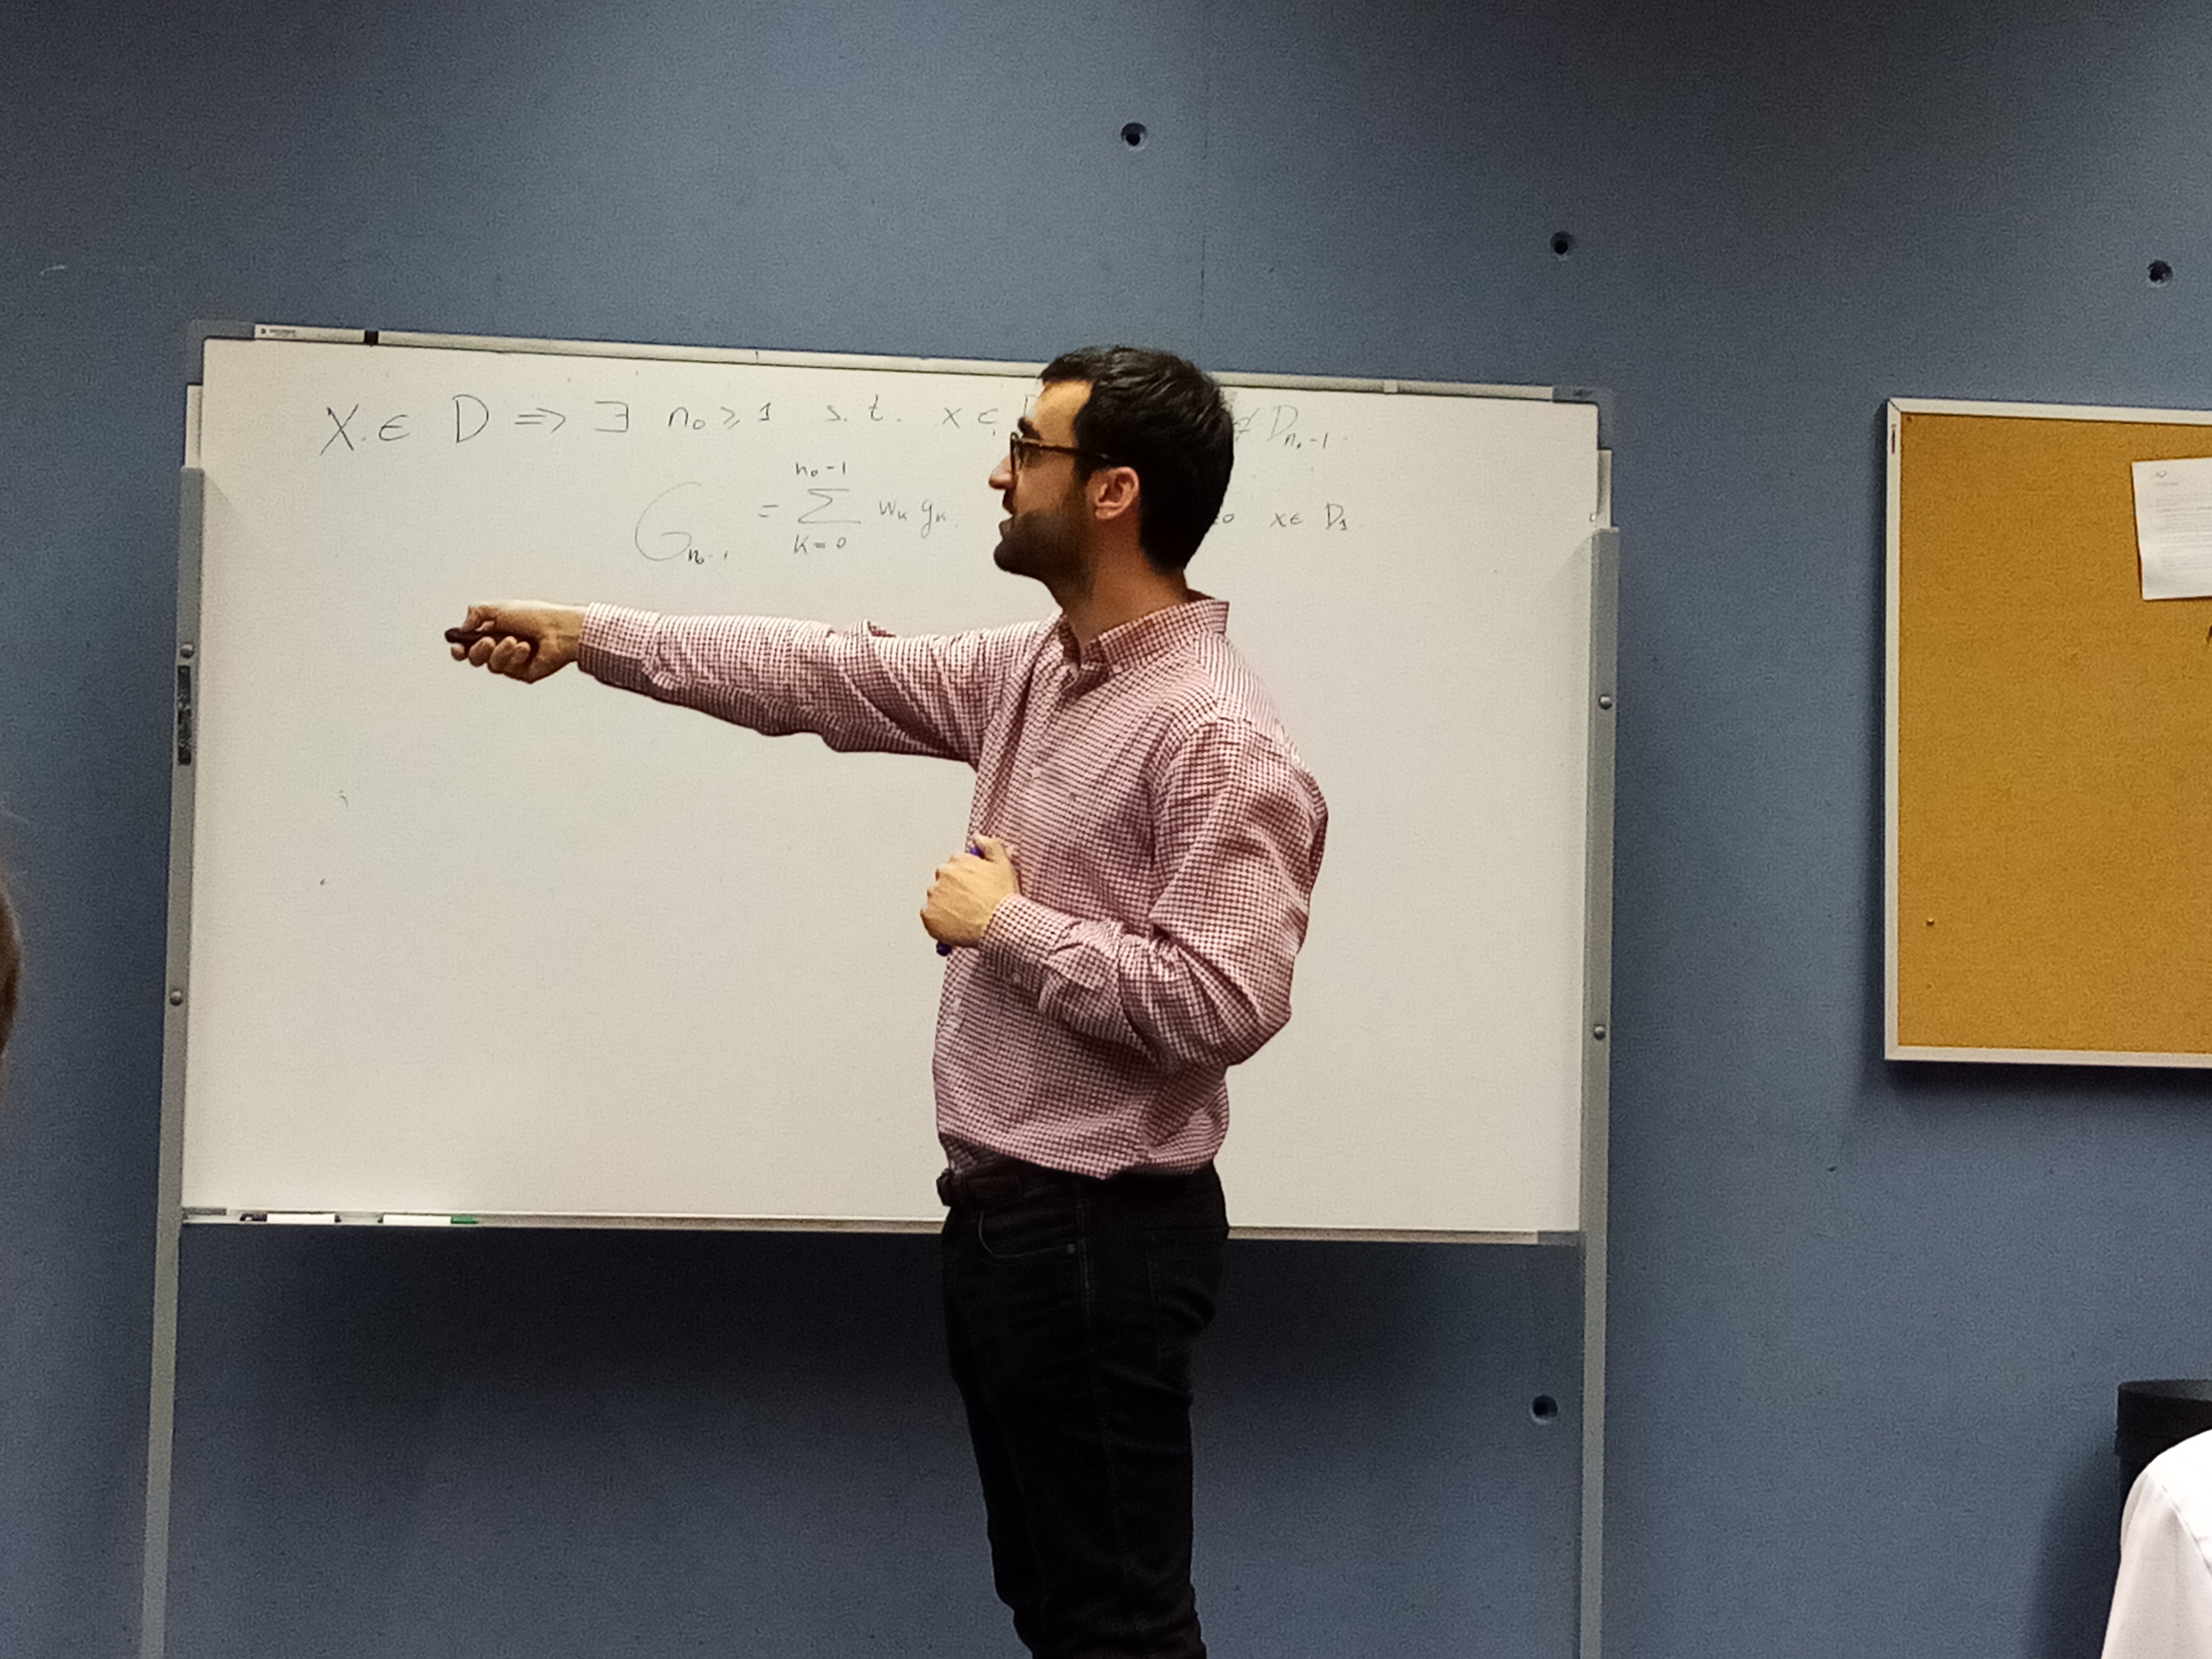 X ∈ D ⇒ ∃ n₀ ≥ 1 s.t. x ∈ ∉ D_{n₀-1}
G_{n₀-1} = \sum_{K=0}^{n₀-1} w_K g_K x ∈ D₁